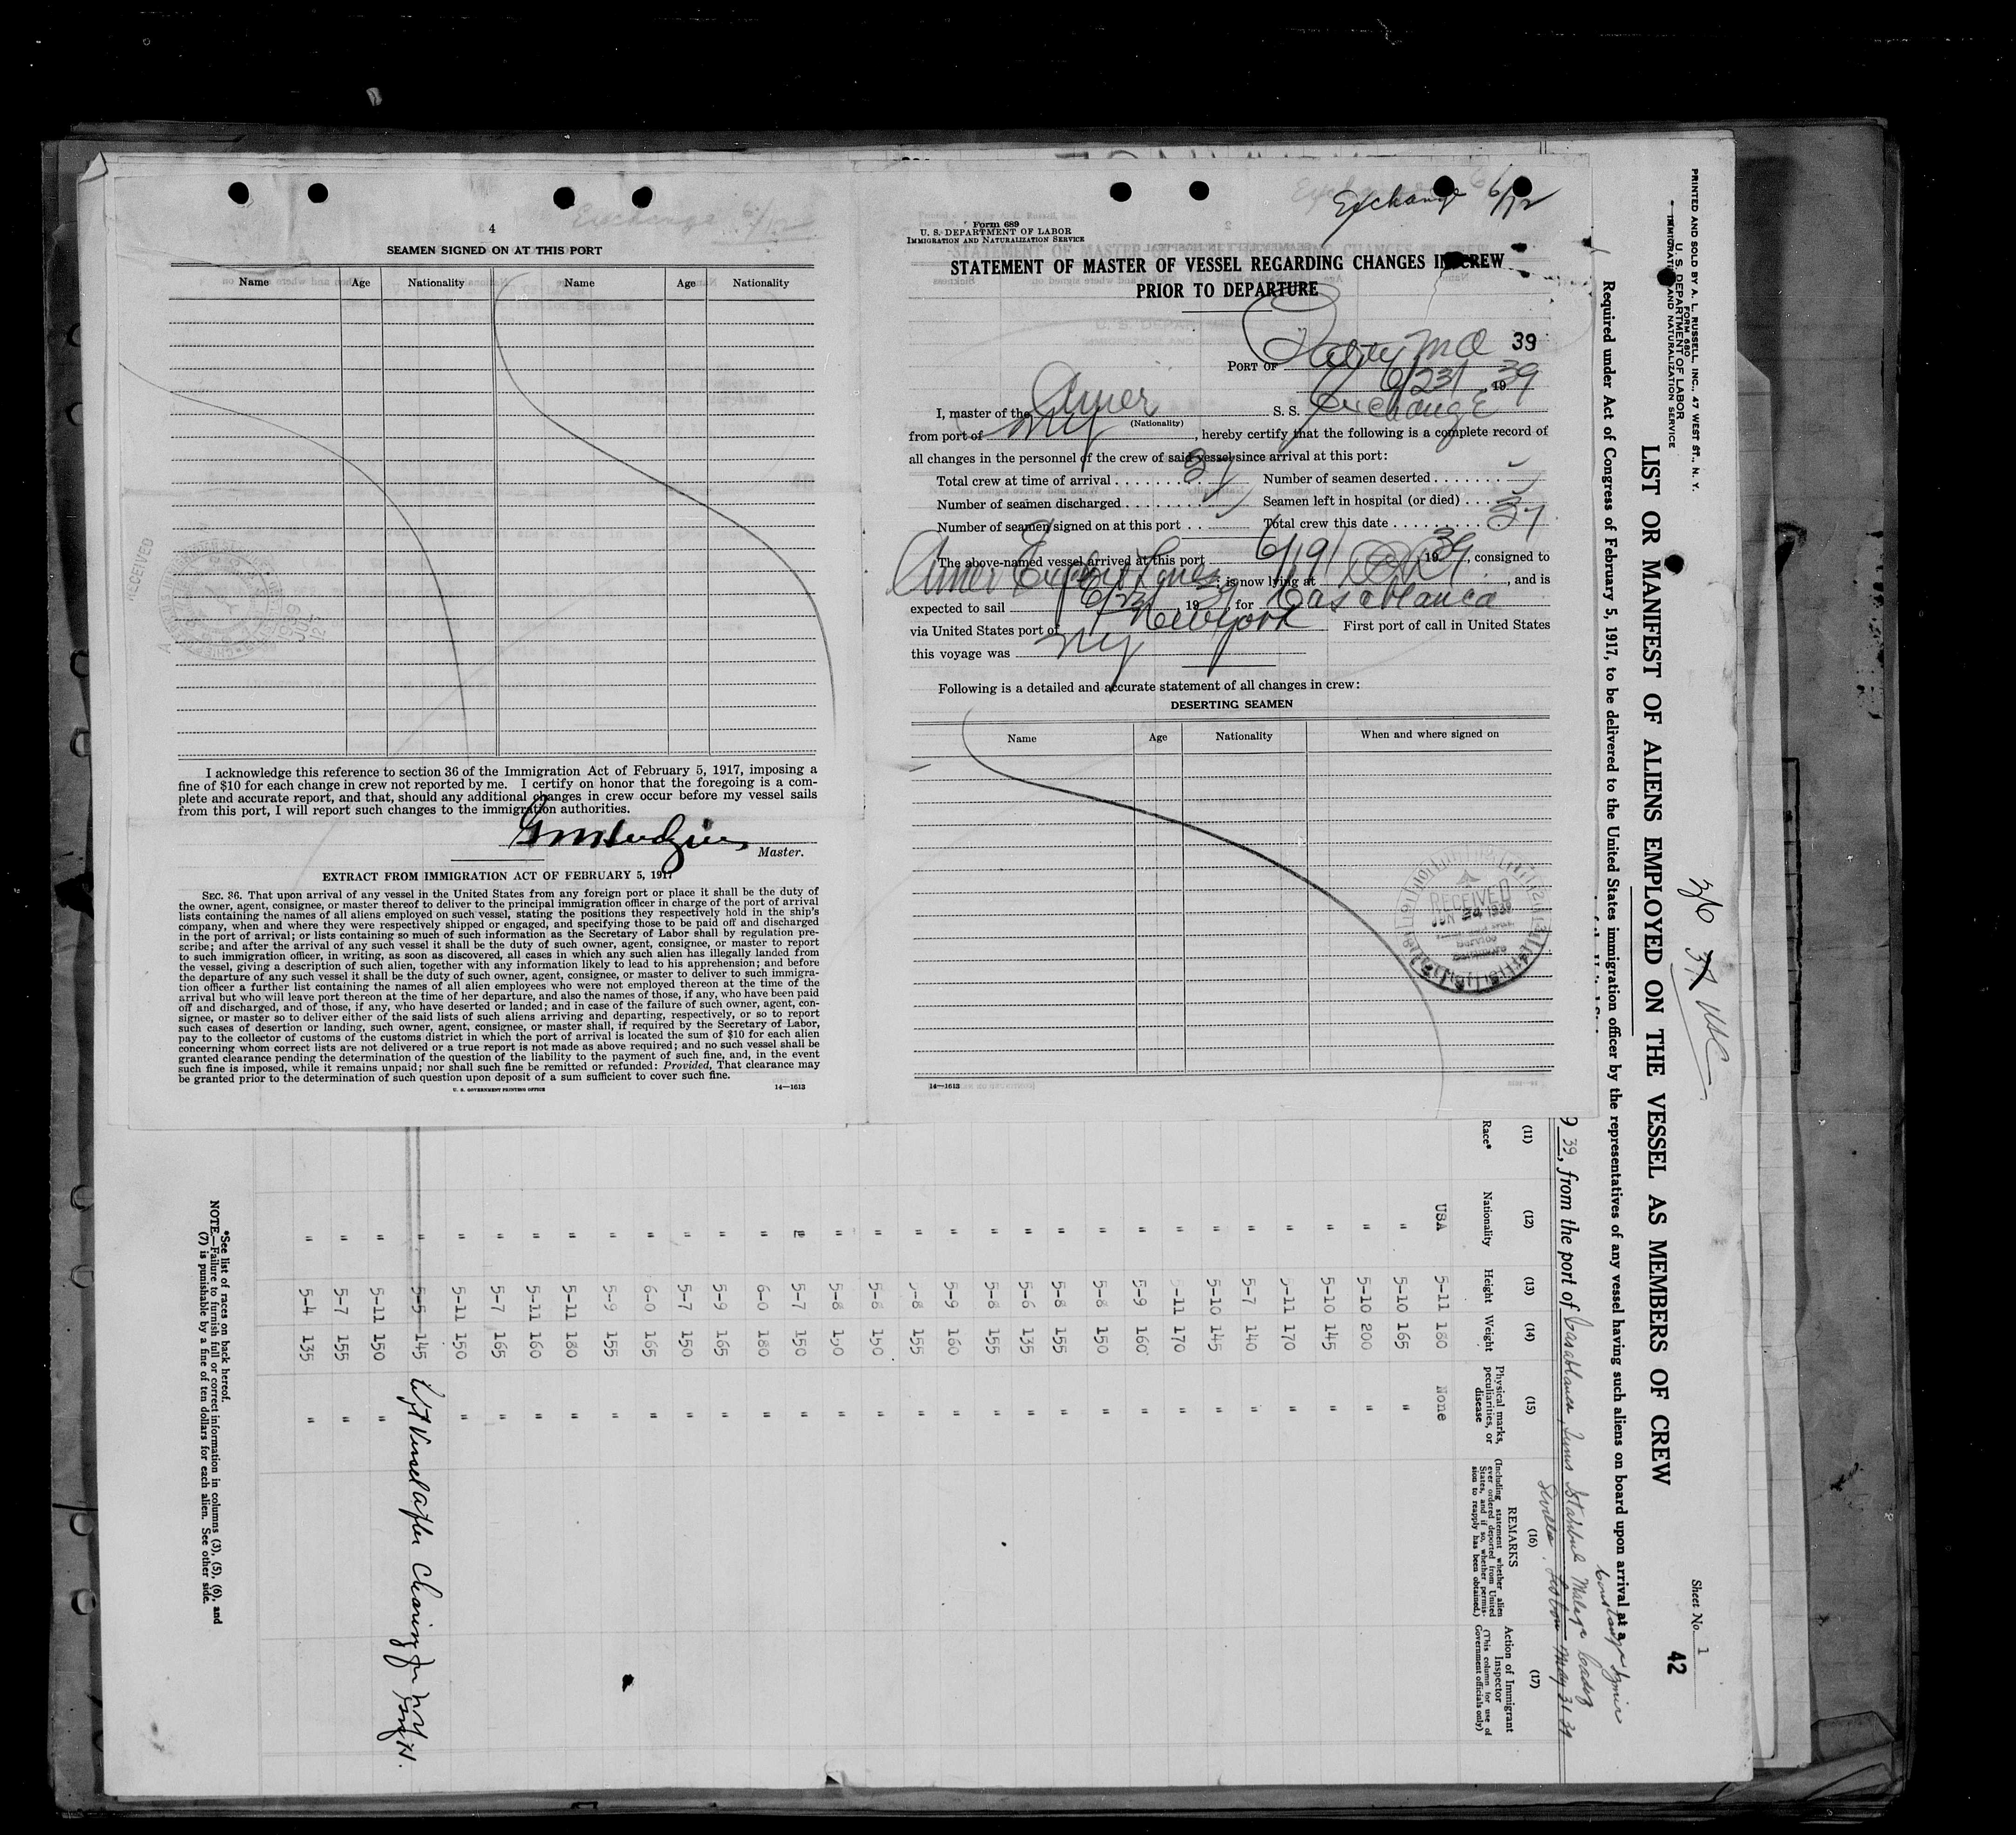 4
SEAMEN SIGNED ON AT THIS PORT
Name Age Nationality Name Age Nationality
I acknowledge this reference to section 36 of the Immigration Act of February 5, 1917, imposing a
fine of $10 for each change in crew not reported by me. I certify on honor that the foregoing is a com-
plete and accurate report, and that, should any additional changes in crew occur before my vessel sails
from this port, I will report such changes to the immigration authorities.
Master.
EXTRACT FROM IMMIGRATION ACT OF FEBRUARY 5, 1917
SEC. 36. That upon arrival of any vessel in the United States from any foreign port or place it shall be the duty of
the owner, agent, consignee, or master thereof to deliver to the principal immigration officer in charge of the port of arrival
lists containing the names of all aliens employed on such vessel, stating the positions they respectively hold in the ship's
company, when and where they were respectively shipped or engaged, and specifying those to be paid off and discharged
in the port of arrival; or lists containing so much of such information as the Secretary of Labor shall by regulation pre-
scribe; and after the arrival of any such vessel it shall be the duty of such owner, agent, consignee, or master to report
to such immigration officer, in writing, as soon as discovered, all cases in which any such alien has illegally landed from
the vessel, giving a description of such alien, together with any information likely to lead to his apprehension; and before
the departure of any such vessel it shall be the duty of such owner, agent, consignee, or master to deliver to such immigra-
tion officer a further list containing the names of all alien employees who were not employed thereon at the time of the
arrival but who will leave port thereon at the time of her departure, and also the names of those, if any, who have been paid
off and discharged, and of those, if any, who have deserted or landed; and in case of the failure of such owner, agent, con-
signee, or master so to deliver either of the said lists of such aliens arriving and departing, respectively, or so to report
such cases of desertion or landing, such owner, agent, consignee, or master shall, if required by the Secretary of Labor,
pay to the collector of customs of the customs district in which the port of arrival is located the sum of $10 for each alien
concerning whom correct lists are not delivered or a true report is not made as above required; and no such vessel shall be
granted clearance pending the determination of the question of the liability to the payment of such fine, and, in the event
such fine is imposed, while it remains unpaid; nor shall such fine be remitted or refunded: Provided, That clearance may
be granted prior to the determination of such question upon deposit of a sum sufficient to cover such fine.
U. S. GOVERNMENT PRINTING OFFICE 14—1613
RECEIVED
Exchange 6/12
Form 689
U. S. DEPARTMENT OF LABOR
IMMIGRATION AND NATURALIZATION SERVICE
STATEMENT OF MASTER OF VESSEL REGARDING CHANGES IN CREW
PRIOR TO DEPARTURE
PORT OF Balto Md 39
6/23/, 1939
I, master of the Amer S. S. Exchange
(Nationality)
from port of NY, hereby certify that the following is a complete record of
all changes in the personnel of the crew of said vessel since arrival at this port:
Total crew at time of arrival 37 Number of seamen deserted
Number of seamen discharged Seamen left in hospital (or died)
Number of seamen signed on at this port Total crew this date 37
The above-named vessel arrived at this port 6/19/ 1939, consigned to
Amer Export Lines; is now lying at, and is
expected to sail 6/23, 1939, for Casablanca
via United States port of New York First port of call in United States
this voyage was NY
Following is a detailed and accurate statement of all changes in crew:
DESERTING SEAMEN
Name Age Nationality When and where signed on
RECEIVED
JUN 24 1939
14—1613
PRINTED AND SOLD BY A. L. RUSSELL, INC., 47 WEST ST., N. Y.
FORM 680
U. S. DEPARTMENT OF LABOR
IMMIGRATION AND NATURALIZATION SERVICE
Sheet No. 1
42
36 37 USC
LIST OR MANIFEST OF ALIENS EMPLOYED ON THE VESSEL AS MEMBERS OF CREW
Required under Act of Congress of February 5, 1917, to be delivered to the United States immigration officer by the representatives of any vessel having such aliens on board upon arrival at a
39, from the port of Casablanca, Tunis Istanbul Malaga Cadiz
Lisbon May 31 39
(11) (12) (13) (14) (15) (16) (17)
Race* Nationality Height Weight Physical marks, peculiarities, or disease REMARKS (Including statement whether alien ever ordered deported from United States, and if so, whether permission to reapply has been obtained.) Action of Immigrant Inspector (This column for use of Government officials only)
USA 5-11 180 None
" 5-10 165 "
" 5-10 200 "
" 5-10 145 "
" 5-11 170 "
" 5-7 140 "
" 5-10 145 "
" 5-11 170 "
" 5-9 160 "
" 5-8 150 "
" 5-8 155 "
" 5-6 135 "
" 5-8 155 "
" 5-9 160 "
" 5-8 155 "
" 5-8 150 "
" 5-8 150 "
" 5-7 150 "
" 6-0 180 "
" 5-9 165 "
" 5-7 150 "
" 6-0 165 "
" 5-9 155 "
" 5-11 180 "
" 5-11 160 "
" 5-7 165 "
" 5-11 150 "
" 5-5 145 Left Vessel after Clearing for
" 5-11 150 "
" 5-7 155 "
" 5-4 135 "
*See list of races on back hereof.
NOTE.—Failure to furnish full or correct information in columns (3), (5), (6), and
(7) is punishable by a fine of ten dollars for each alien. See other side.